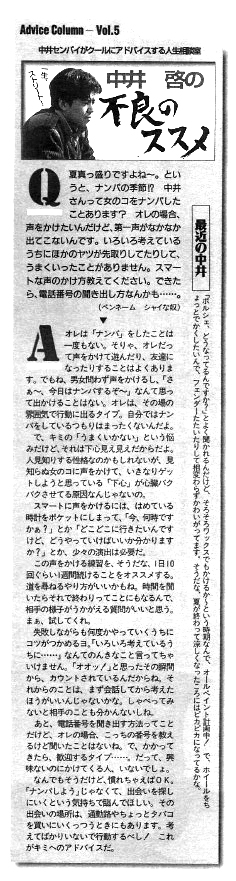 Advice Column — Vol.5
中井センパイがクールにアドバイスする人生相談室
一生、ストリート!
中井 啓の
不良の
ススメ
Q
夏真っ盛りですよね〜。とい
うと、ナンパの季節!? 中井
さんって女のコをナンパした
ことあります? オレの場合、
声をかけたいんだけど、第一声がなかなか
出てこないんです。いろいろ考えている
うちにほかのヤツが先取りしてたりして、
うまくいったことがありません。スマー
トな声のかけ方教えてください。できた
ら、電話番号の聞き出し方なんかも……。
(ペンネーム シャイな奴)
A
オレは「ナンパ」をしたことは
一度もない。そりゃ、オレだっ
て声をかけて遊んだり、友達に
なったりすることはよくありま
す。でもね、男女問わず声をかけるし、「さ
ぁ〜、今日はナンパするぞ〜」なんて思っ
て出かけることはない。オレは、その場の
雰囲気で行動に出るタイプ。自分ではナン
パをしているつもりはまったくないんだよ。
で、キミの「うまくいかない」という悩
みだけど、それは下心見え見えだからだよ。
人見知りする性格なのかもしれないが、見
知らぬ女のコに声をかけて、いきなりゲッ
トしようと思っている「下心」が心臓バク
バクさせてる原因なんじゃないの。
スマートに声をかけるには、はめている
時計をポケットにしまって、「今、何時です
かぁ?」とか「どこどこに行きたいんです
けど、どうやっていけばいいか分かります
か?」とか、少々の演出は必要だ。
この声をかける練習を、そうだな、1日10
回ぐらい1週間続けることをオススメする。
道を尋ねるやり方がいいかもね。時間を聞
いたらそれで終わりってことにもなるんで、
相手の様子がうかがえる質問がいいと思う。
まぁ、試してくれ。
失敗しながらも何度かやっていくうちに
コツがつかめるヨ。「いろいろ考えているう
ちに……」なんてのんきなこと言ってちゃ
いけません。「オオッ!」と思ったその瞬間
から、カウントされているんだからね。そ
れからのことは、まず会話してから考えた
ほうがいいんじゃないかな。しゃべってみ
ないと相手のことも分かんないしね。
あと、電話番号を聞き出す方法ってこと
だけど、オレの場合、こっちの番号を教え
るけど聞いたことはないね。で、かかって
きたら、歓迎するタイプ……。だって、興
味ないのにかけてくる人、いないでしょ。
なんでもそうだけど、慣れちゃえばOK。
「ナンパしよう」じゃなくて、出会いを探し
にいくという気持ちで臨んでほしい。その
出会いの場所は、通勤路やちょっとタバコ
を買いにいくっつうときにもあります。考
えてばかりいないで行動するべし! これ
がキミへのアドバイスだ。
最近の中井
「ポルシェ、どうなってるんですか?」とよく聞かれるんだけど、そろそろワックスでもかけるか!という時期なんで、オールペイント計画中! で、ホイールをち
ょっとでかくしたいんで、フェンダーたたいたりして相変わらずかわいがってます。そうだな、夏が終わって涼しくなったころにはピカピカになってるかな。